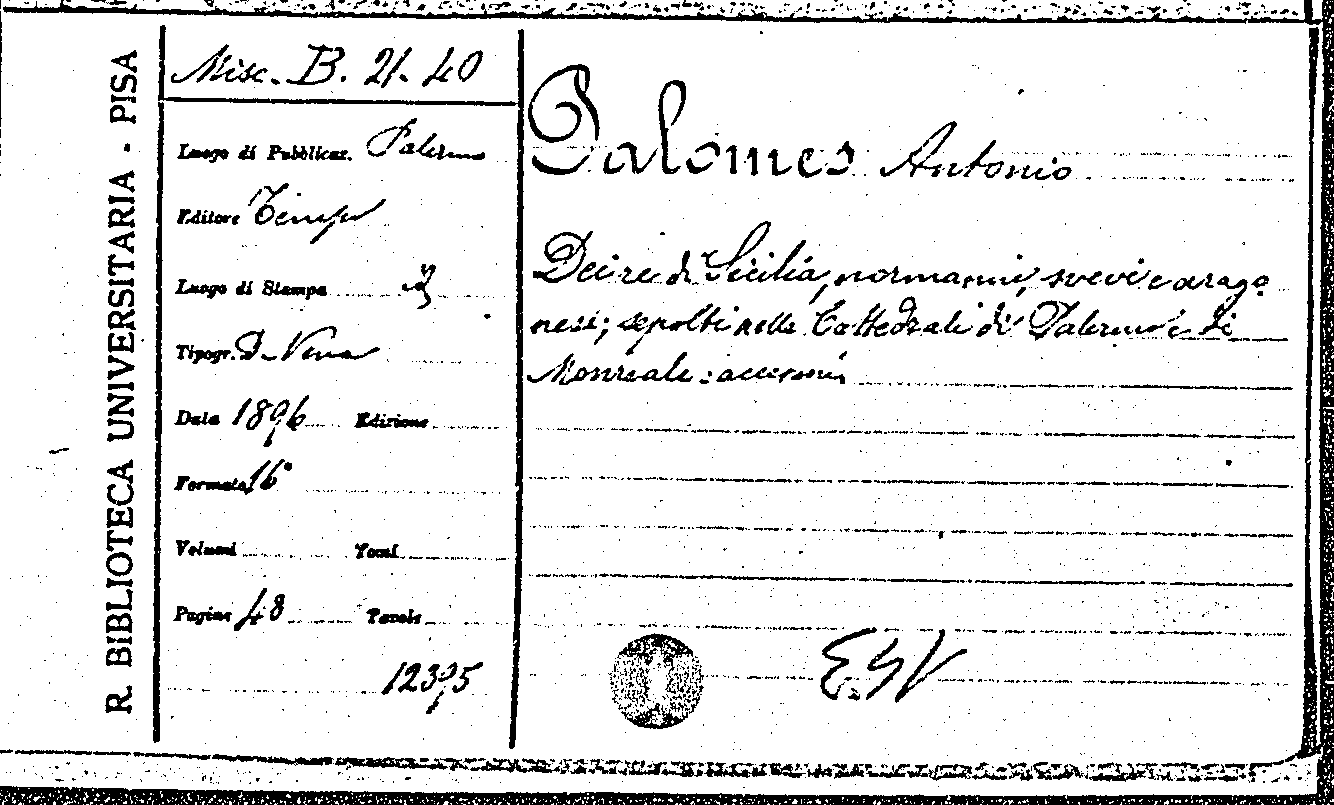 R. BIBLIOTECA UNIVERSITARIA - PISA
Misc. B. 21. 40
Luogo di Pubblicaz. Palermo
Editore Tempo
Luogo di Stampa
Tipogr. D. Vena
Data 1896 Edizione
Formato 16°
Volumi Tomi
Pagine 48 Tavole
12395
Palomes Antonio
Dei re di Sicilia, normanni, svevi e arago
nesi; sepolti nelle Cattedrali di Palermo e di
Monreale: accenni